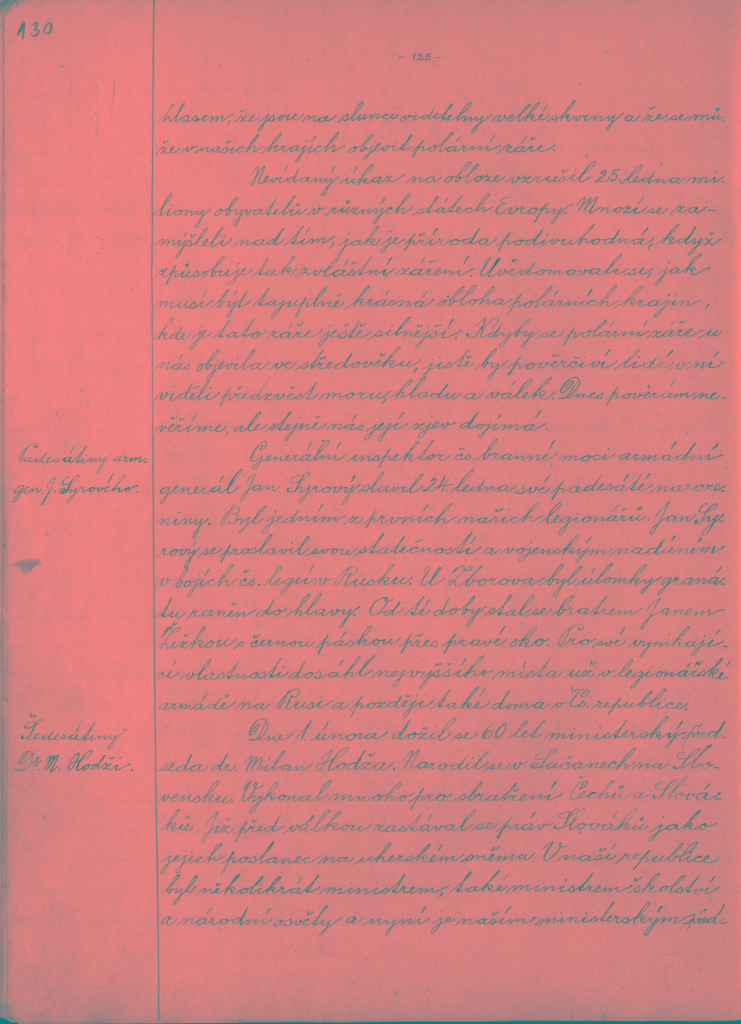 130
- 125 -
hlasem, že jsou na slunci viditelny velké skvrny a že se mů-
že v našich krajích objevit polární záře.
Nevídaný úkaz na obloze vzrušil 25. ledna mi-
liony obyvatelů v různých státech Evropy. Mnozí se za-
mýšleli nad tím, jak je příroda podivuhodná, když
způsobuje tak zvláštní záření. Uvědomovali si, jak
musí být tajuplně krásná obloha polárních krajin,
kde je tato záře ještě silnější. Kdyby se polární záře u
nás objevila ve středověku, jistě by pověrčiví lidé v ní
viděli předzvěst moru, hladu a válek. Dnes pověrám ne-
věříme, ale stejně nás její zjev dojímá.
Padesátiny arm.
gen. J. Syrového.
Generální inspektor čs. branné moci armádní
generál Jan Syrový slavil 24. ledna své padesáté naroze-
niny. Byl jedním z prvních našich legionářů. Jan Sy-
rový se proslavil svou statečností a vojenským nadáním
v bojích čs. legií v Rusku. U Zborova byl úlomky graná-
tu raněn do hlavy. Od té doby stal se bratrem Janem
Žižkou s černou páskou přes pravé oko. Pro své vynikají-
cí vlastnosti dosáhl nejvyššího místa už v legionářské
armádě na Rusi a později také doma v Čs. republice.
Šedesátiny
Dr. M. Hodži.
Dne 1. února dožil se 60 let ministerský před-
seda dr. Milan Hodža. Narodil se v Sučanech na Slo-
vensku. Vykonal mnoho pro sbratření Čechů a Slová-
ků. Již před válkou zastával se práv Slováků jako
jejich poslanec na uherském sněmu. V naší republice
byl několikrát ministrem, také ministrem školství
a národní osvěty a nyní je naším ministerským před-